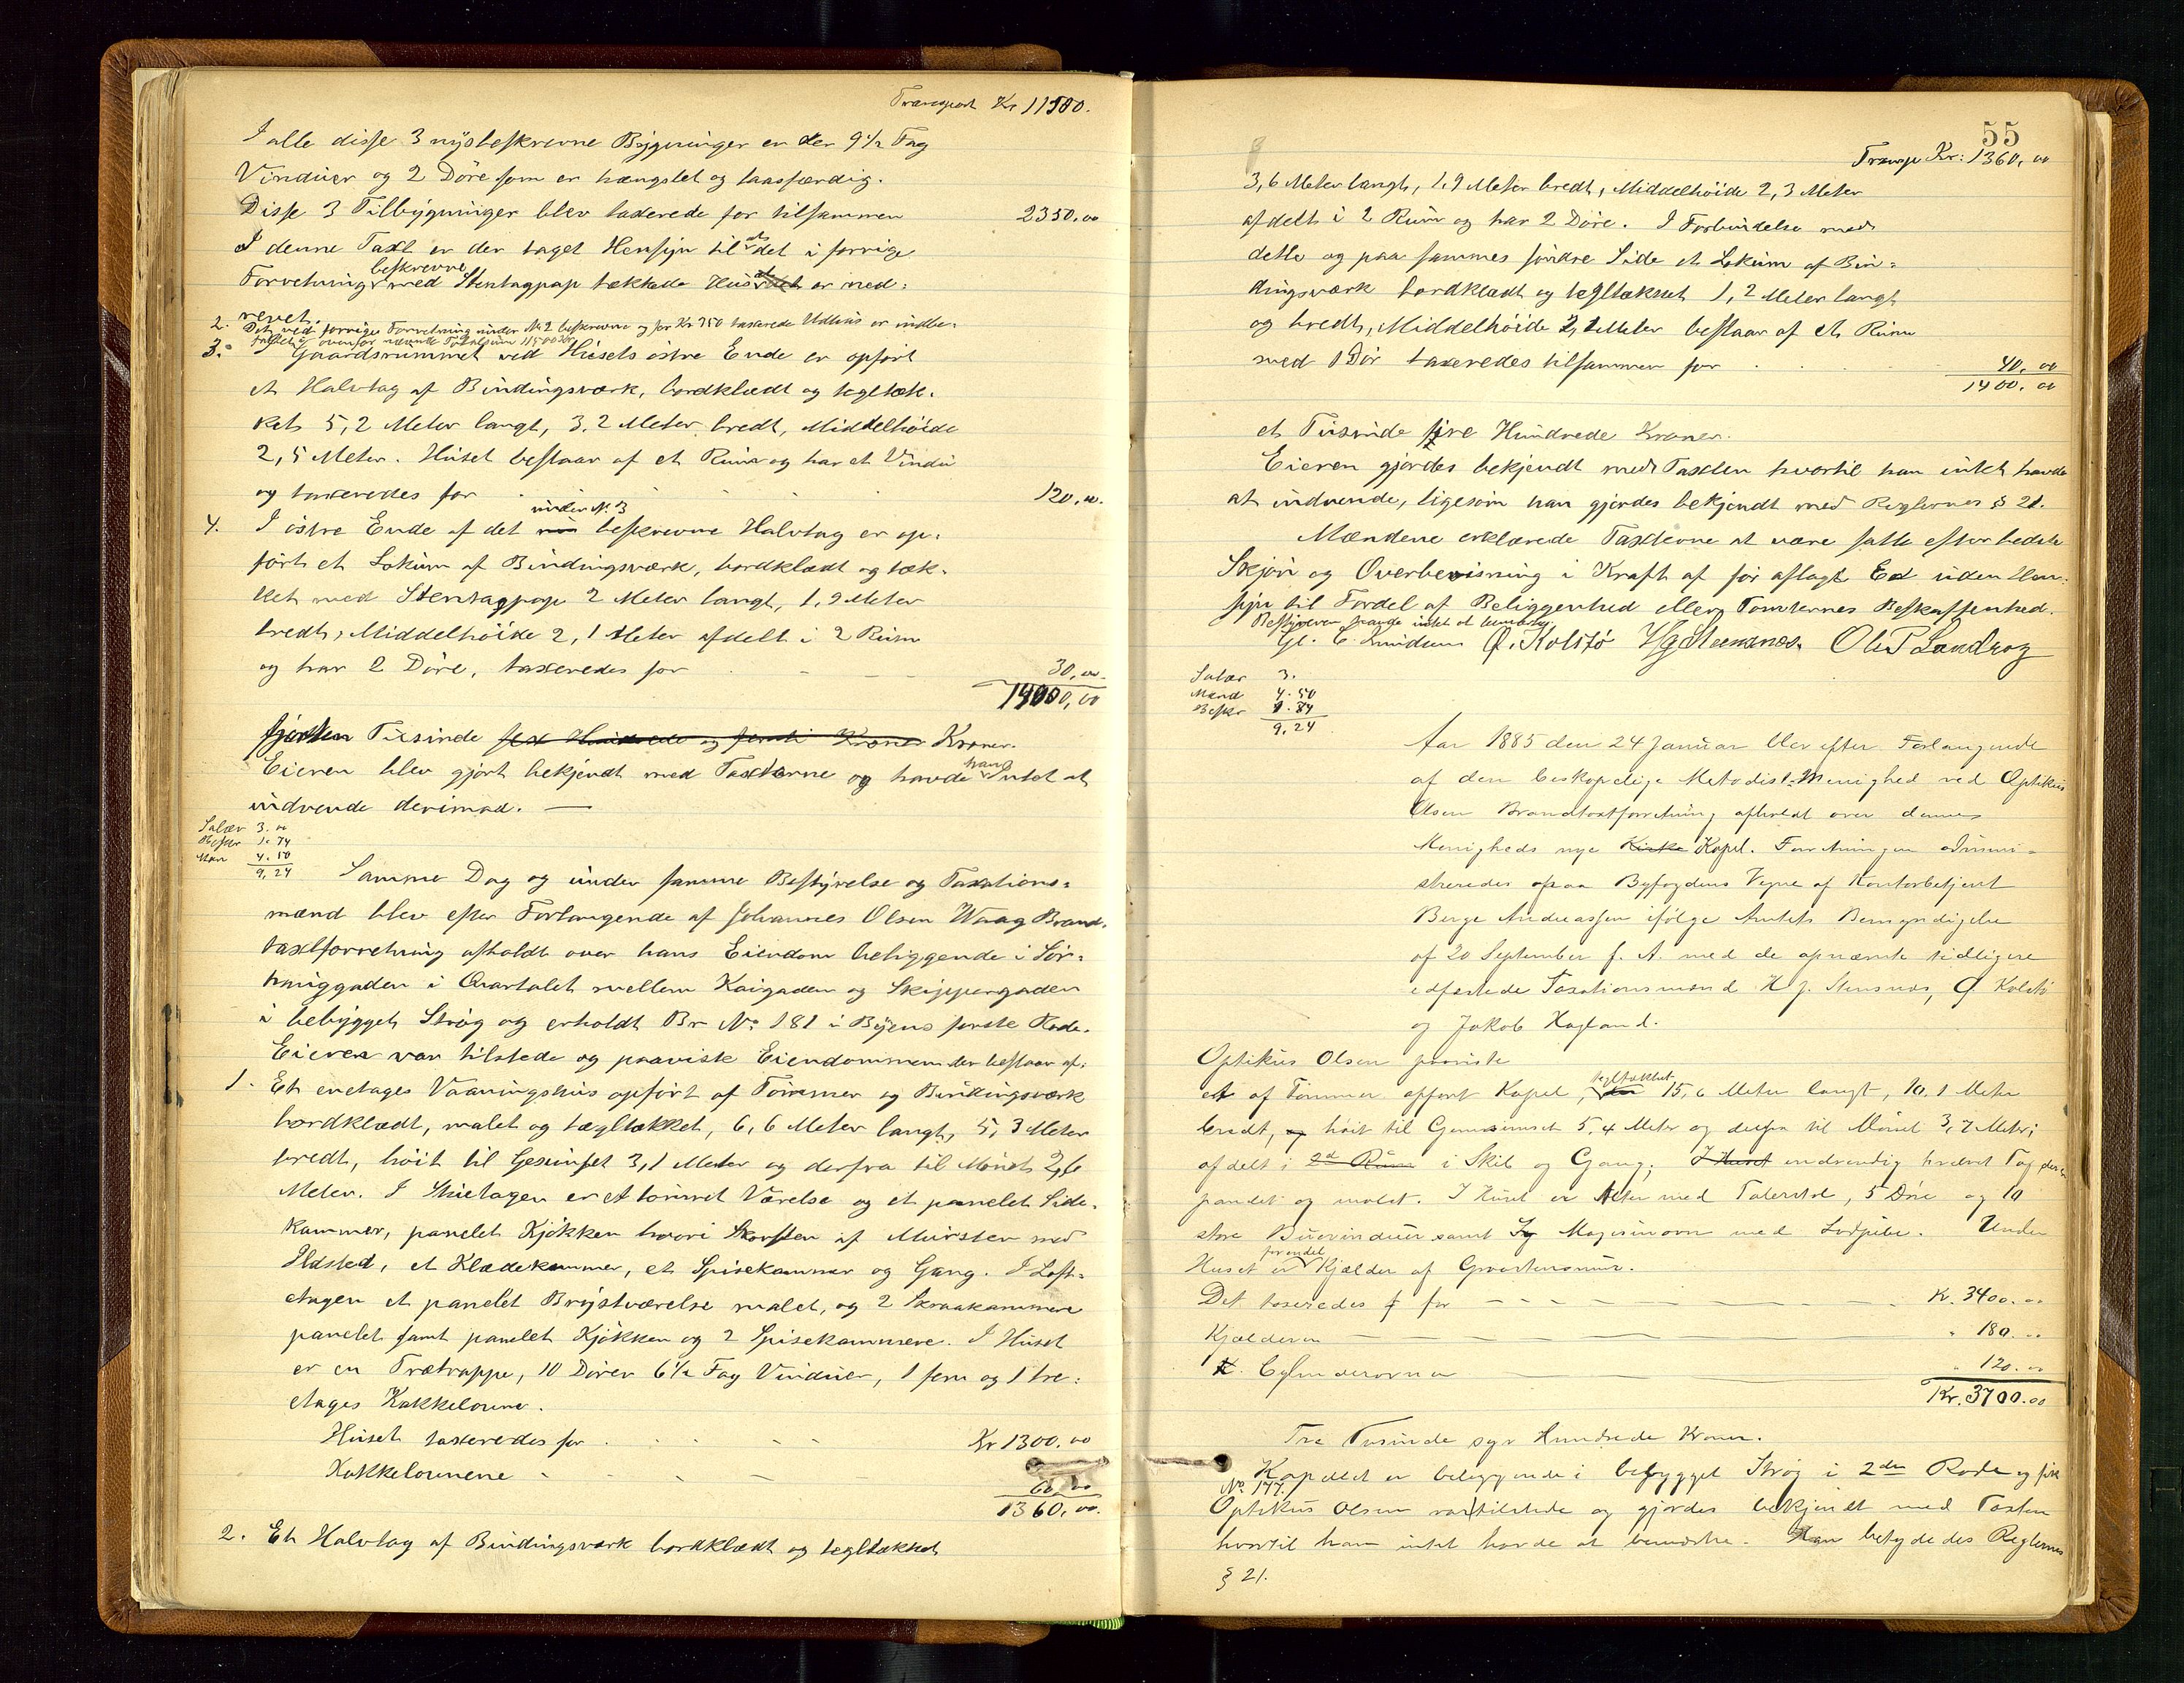 Transport Kr 11500.
I alle disse 3 nysbeskrevne Bygninger er der 9 1/2 Fag
Vinduer og 2 Döre som er hængslet og laasfærdig.
Disse 3 Tilbygninger blev taxerede for tilsammen 2350,00
I denne Taxt er der taget Hensyn til at det i forrige
Forretning beskrevne med Stentagpap tækkede Hus er ned-
revet.
2. Det ved forrige Forretning under No 2 beskrevne og for Kr 350 taxerede Udhus er indbe-
fattet i ovenfor nævnte Totalsum 11500 Kr.
3. I Gaardsrummet ved Husets östre Ende er opfört
et Halvtag af Bindingsværk, bordklædt og tegltæk-
ket 5,2 Meter langt, 3,2 Meter bredt, Middelhöide
2,5 Meter. Huset bestaar af et Rum og har et Vindu
og taxeredes for 120,00.
4. I östre Ende af det under No 3 beskrevne Halvtag er op-
fört et Lokum af Bindingsværk, bordklædt og tæk-
ket med Stentagpap 2 Meter langt, 1,9 Meter
bredt, Middelhöide 2,1 Meter afdelt i 2 Rum
og har 2 Döre, taxeredes for 30,00
14000,00
fjorten Tusinde sex Hundrede og femti Kroner Kroner.
Eieren blev gjort bekjendt med Taxterne og havde han Intet at
indvende derimod. —
Salær 3.00
Beskr 1.74
Mæn 4.50
9,24
Samme Dag og under samme Bestyrelse og Taxations-
mænd blev efter Forlangende af Johannes Olsen Waag Brand-
taxtforretning afholdt over hans Eiendom beliggende i Sör-
hauggaden i Qvartalet mellem Kaigaden og Skippergaden
i bebygget Strög og erholdt Br No 181 i Byens förste Rode.
Eieren var tilstede og paaviste Eiendommen der bestaar af:
1. Et enetages Vaaningshus opfört af Tömmer og Bindingsværk
bordklædt, malet og tægltækket, 6,6 Meter langt, 5,3 Meter
bredt, höit til Gesimset 3,1 Meter og derfra til Mönet 2,6
Meter. I Stuetagen er et tömret Værelse og et panelet Side-
kammer, panelet Kjökken hvori Skorsten af Mursten med
Ildsted, et Klædekammer, et Spisekammer og Gang. I Loft-
etagen et panelet Brystværelse malet, og 2 Skraakammere
panelet samt panelet Kjökken og 2 Spisekammere. I Huset
er en Trætrappe, 10 Dörer 6 1/2 Fag Vinduer, 1 fem og 1 tre-
etages Kakkelovne.
Huset taxeredes for Kr 1300.00
Kakkelovnene 60,00
1360,00.
2. Et Halvtag af Bindingsværk bordklædt og tegltækket
55
Transp Kr: 1360,00
3,6 Meter langt, 1,9 Meter bredt, Middelhöide 2,3 Meter
afdelt i 2 Rum og har 2 Döre. I Forbindelse med
dette og paa sammes söndre Side et Lokum af Bin-
dingsværk bordklædt og tegltækket 1,2 Meter langt
og bredt, Middelhöide 2,1 Meter bestaar af et Rum
med 1 Dör taxeredes tilsammen for 40,00
1400,00
et Tusinde fire Hundrede Kroner.
Eieren gjordes bekjendt med Taxten hvortil han intet havde
at indvende, ligesom han gjordes bekjendt med Reglernes § 21.
Mændene erklærede Taxterne at være satte efter bedste
Skjön og Overbevisning i Kraft af för aflagt Ed uden Hen-
syn til Fordel af Beliggenhed eller Tomternes Beskaffenhed.
Bestyreren havde intet at bemærke.
Gl. C. Knudsen Ö. Kolstö HJ Stensnæs. Ole T Sandvag
Salær 3.
Mænd 4.50
Beskr 1.74
9,24
Aar 1885 den 24 Januar blev efter Forlangende
af den biskopelige Metodist-Menighed ved Optikus
Olsen Brandtaxtforretning afholdt over denne
Menigheds nye Kirke Kapel. Forretningen admini-
streredes af paa Byfogdens Vegne af Kontorbetjent
Berge Andreassen ifölge Amtets Bemyndigelse
af 20 September f. A. med de opnævnte tidligere
edfæstede Taxationsmænd H J. Stensnæs, Ö Kolstö
og Jakob Hagland.
Optikus Olsen paaviste
et af Tömmer opfört Kapel, tegltækket 15,6 Meter langt, 10,1 Meter
bredt, og höit til Gesimset 5,4 Meter og derfra til Mönet 3,7 Meter;
afdelt i 2d Rum i Skib og Gang; I Huset indvendig hvælvet Tag
panelet og malet. I Huset er Alter med Talerstol, 5 Döre og 10
store Buevinduer samt Magasinovn med Lodpibe. Under
Huset er for en del Kjælder af Graastensmur.
Det taxeredes for Kr. 3400.00
Kjælderen " 180.00
Cylinderovnen " 120.00
Kr. 3700.00
Tre Tusinde syv Hundrede Kroner.
Kapellet er beliggende i bebygget Strög i 2den Rode og fik
No 144.
Optikus Olsen var tilstede og gjordes bekjendt med Taxten
hvortil han intet havde at bemærke. Han betydedes Reglernes
§ 21.